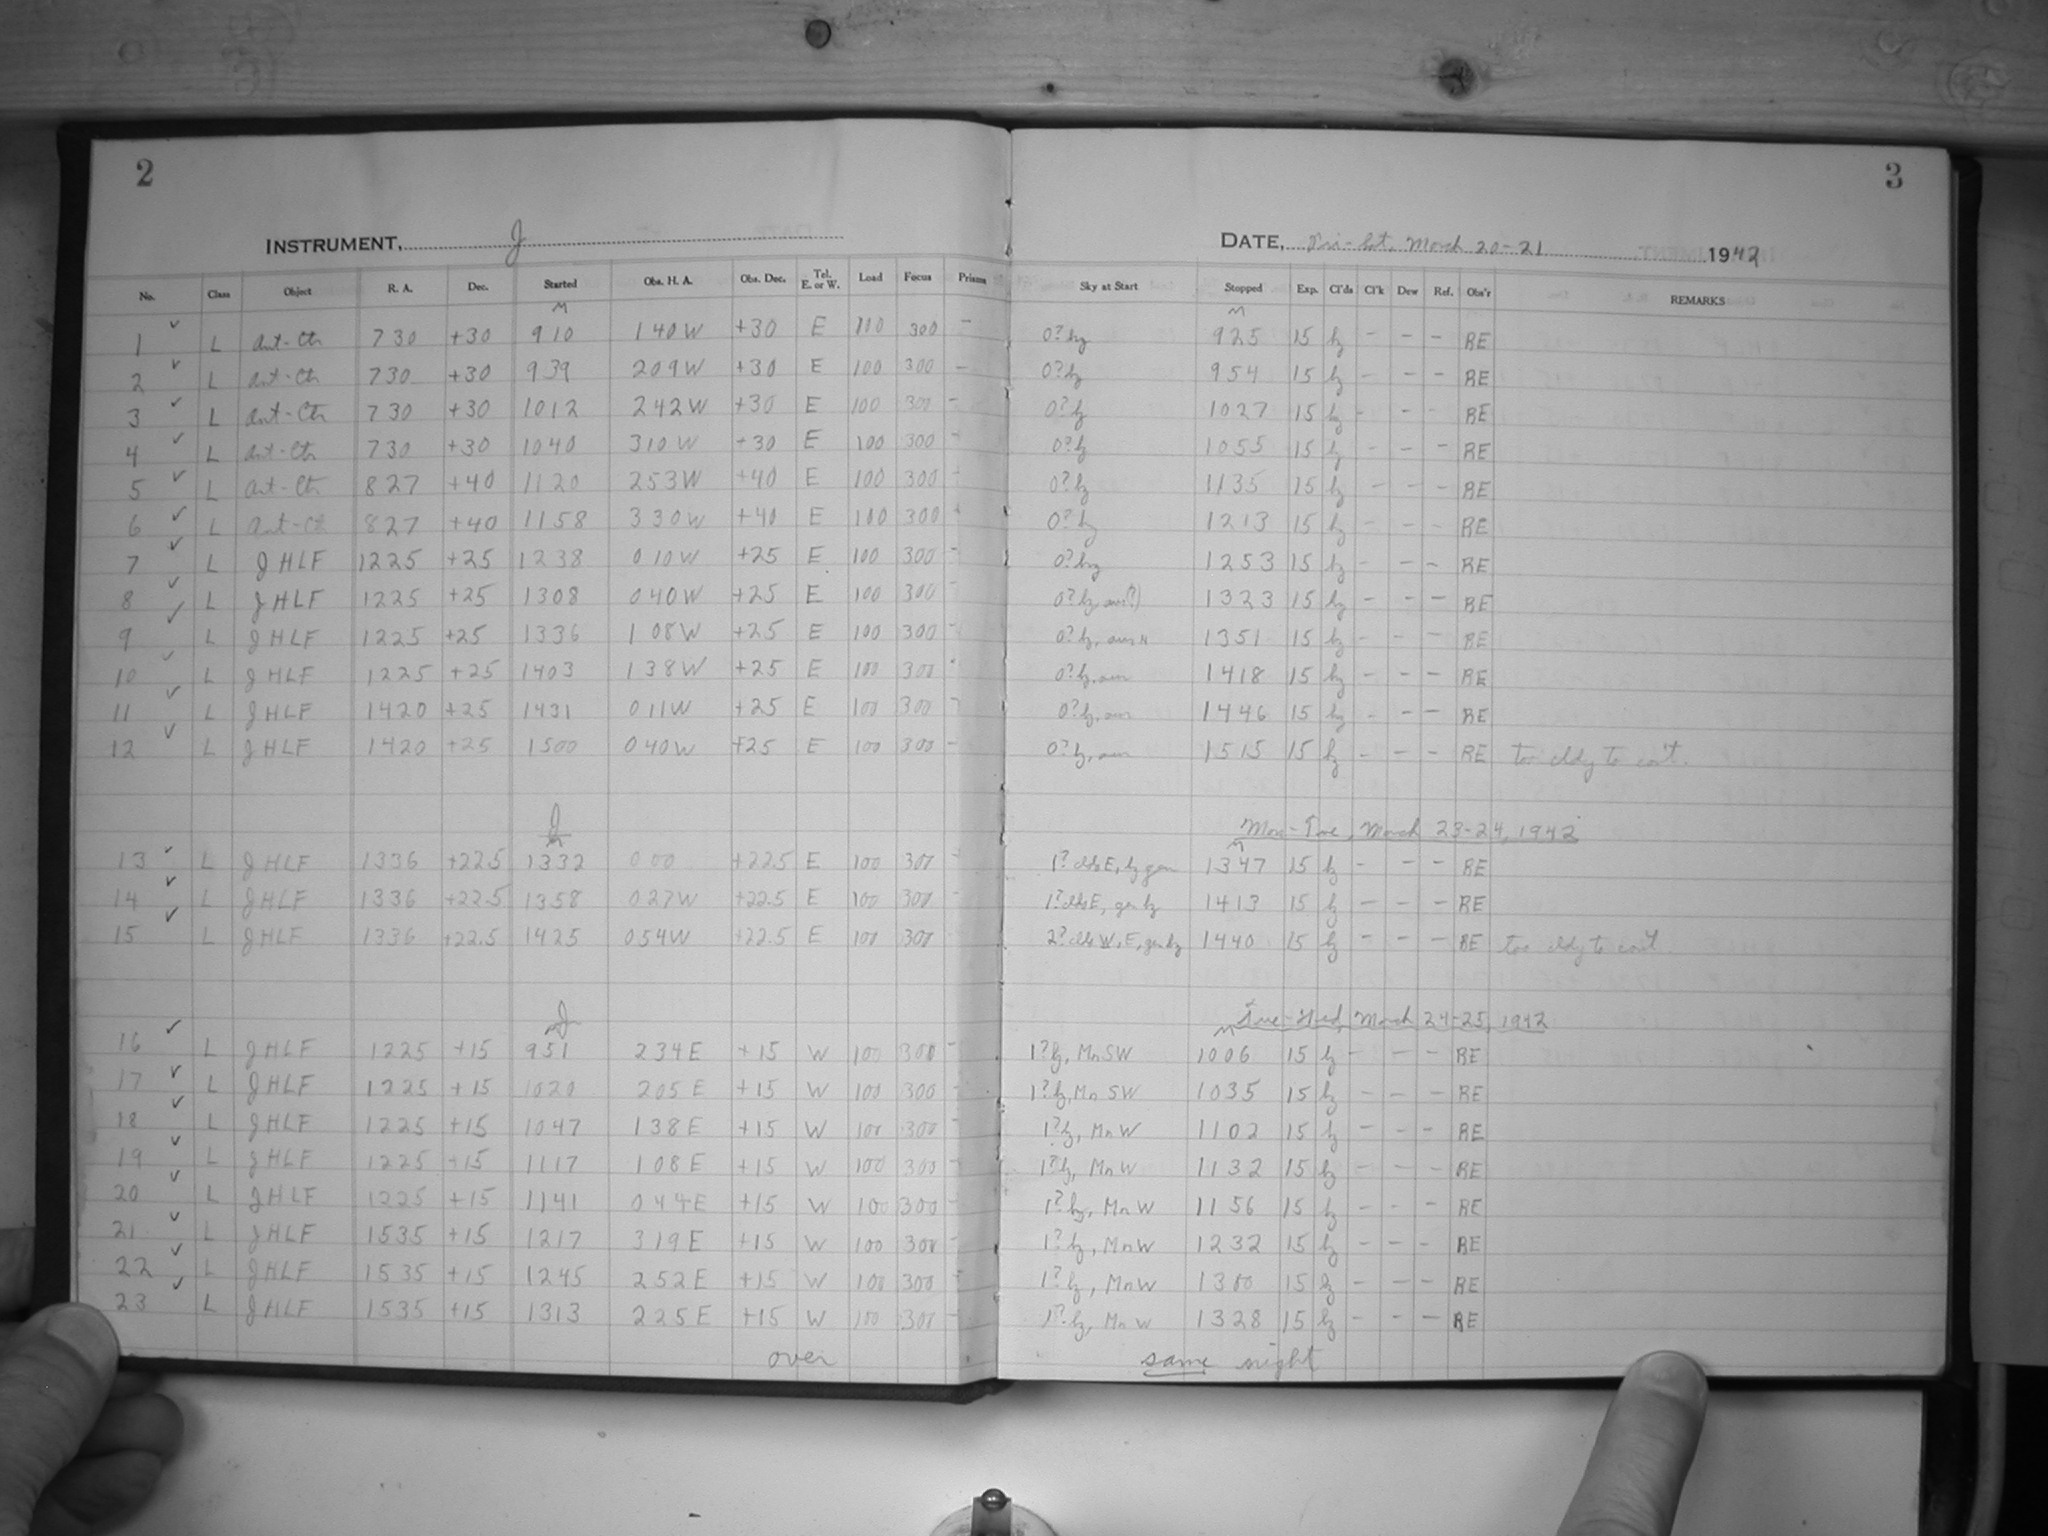 2 3
INSTRUMENT, J DATE, Fri-Sat, March 20-21 1942
No. Class Object R. A. Dec. Started Obs. H. A. Obs. Dec. Tel. E. or W. Load Focus Prisms Sky at Start Stopped Exp. Cl'ds Cl'k Dew Ref. Obs'r REMARKS
M M
1 ✓ L Ant-Ctr 730 +30 910 140W +30 E 100 300 - 0? hz 925 15 hz - - - RE
2 ✓ L Ant-Ctr 730 +30 939 209W +30 E 100 300 - 0? hz 954 15 hz - - - RE
3 ✓ L Ant-Ctr 730 +30 1012 242W +30 E 100 300 - 0? hz 1027 15 hz - - - RE
4 ✓ L Ant-Ctr 730 +30 1040 310W +30 E 100 300 - 0? hz 1055 15 hz - - - RE
5 ✓ L Ant-Ctr 827 +40 1120 253W +40 E 100 300 - 0? hz 1135 15 hz - - - RE
6 ✓ L Ant-Ctr 827 +40 1158 330W +40 E 100 300 - 0? hz 1213 15 hz - - - RE
7 ✓ L JHLF 1225 +25 1238 010W +25 E 100 300 - 0? hz 1253 15 hz - - - RE
8 ✓ L JHLF 1225 +25 1308 040W +25 E 100 300 - 0? hz, aur(?) 1323 15 hz - - - RE
9 ✓ L JHLF 1225 +25 1336 108W +25 E 100 300 - 0? hz, aur N 1351 15 hz - - - RE
10 ✓ L JHLF 1225 +25 1403 138W +25 E 100 300 - 0? hz, aur 1418 15 hz - - - RE
11 ✓ L JHLF 1420 +25 1431 011W +25 E 100 300 - 0? hz, aur 1446 15 hz - - - RE
12 ✓ L JHLF 1420 +25 1500 040W +25 E 100 300 - 0? hz, aur 1515 15 hz - - - RE too cldy to con't.
J Mon-Tue, March 23-24, 1942
M M
13 ✓ L JHLF 1336 +22.5 1332 000 +22.5 E 100 300 - 1? clds E, hz gen 1347 15 hz - - - RE
14 ✓ L JHLF 1336 +22.5 1358 027W +22.5 E 100 300 - 1? clds E, gen hz 1413 15 hz - - - RE
15 ✓ L JHLF 1336 +22.5 1425 054W +22.5 E 100 300 2? clds W, E, gen hz 1440 15 hz - - - RE too cldy to con't
J Tue-Wed, March 24-25, 1942
M M
16 ✓ L JHLF 1225 +15 951 234E +15 W 100 300 - 1? hz, Mn SW 1006 15 hz - - - RE
17 ✓ L JHLF 1225 +15 1020 205E +15 W 100 300 - 1? hz, Mn SW 1035 15 hz - - - RE
18 ✓ L JHLF 1225 +15 1047 138E +15 W 100 300 - 1? hz, Mn W 1102 15 hz - - - RE
19 ✓ L JHLF 1225 +15 1117 108E +15 W 100 300 - 1? hz, Mn W 1132 15 hz - - - RE
20 ✓ L JHLF 1225 +15 1141 044E +15 W 100 300 - 1? hz, Mn W 1156 15 hz - - - RE
21 ✓ L JHLF 1535 +15 1217 319E +15 W 100 300 - 1? hz, Mn W 1232 15 hz - - - RE
22 ✓ L JHLF 1535 +15 1245 252E +15 W 100 300 - 1? hz, Mn W 1300 15 hz - - - RE
23 ✓ L JHLF 1535 +15 1313 225E +15 W 100 300 - 1? hz, Mn W 1328 15 hz - - - RE
over same night